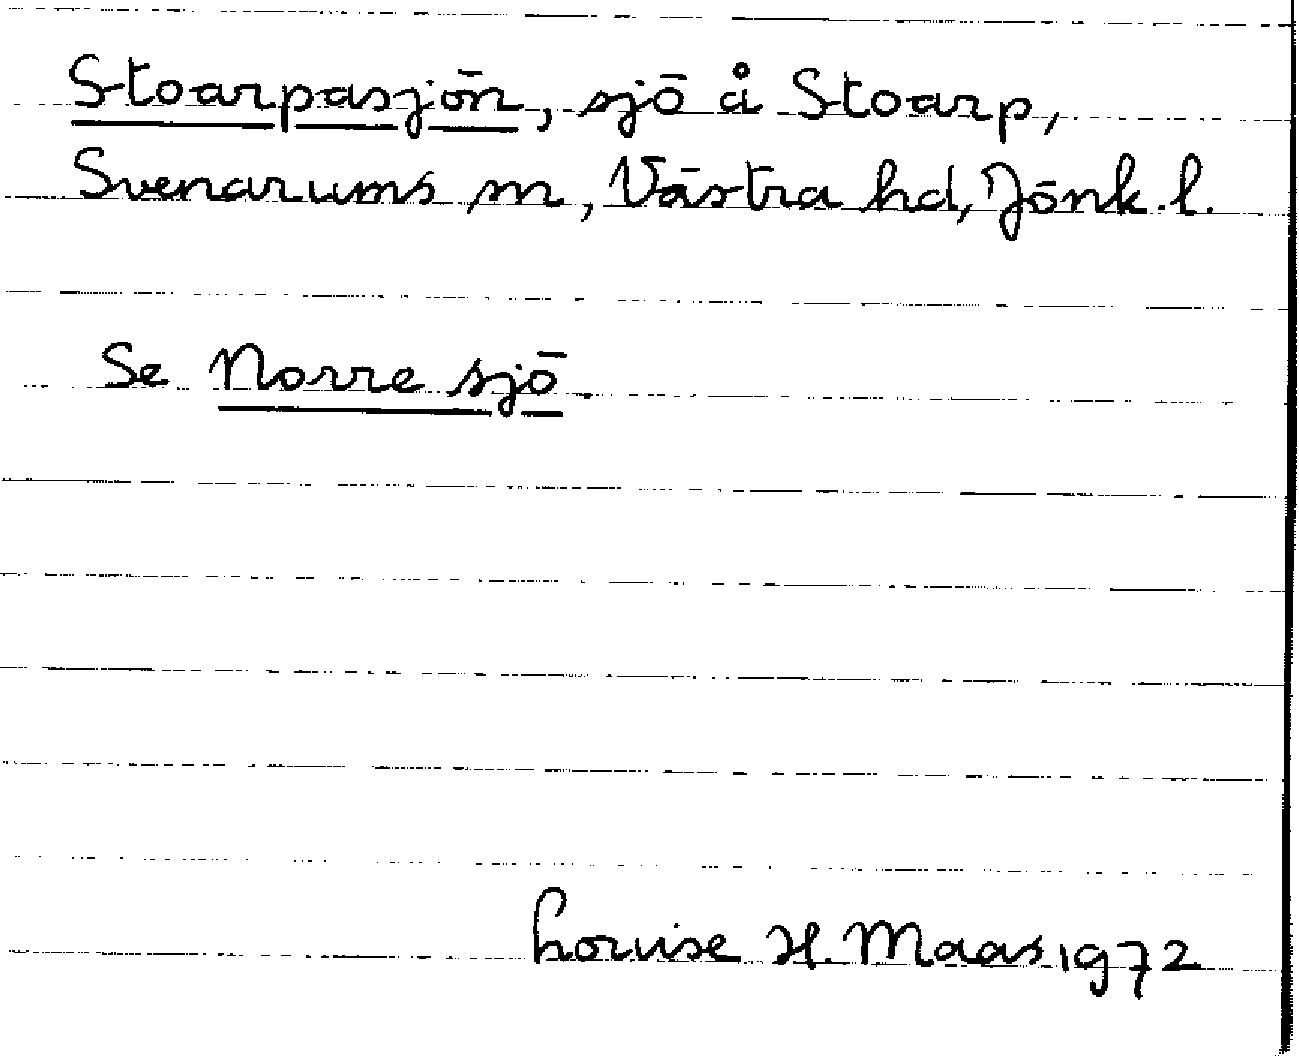 Stoarpasjön, sjö å Stoarp,
Svenarums sn, Västra hd, Jönk. l.
Se Norre sjö
Lovise H. Maas 1972